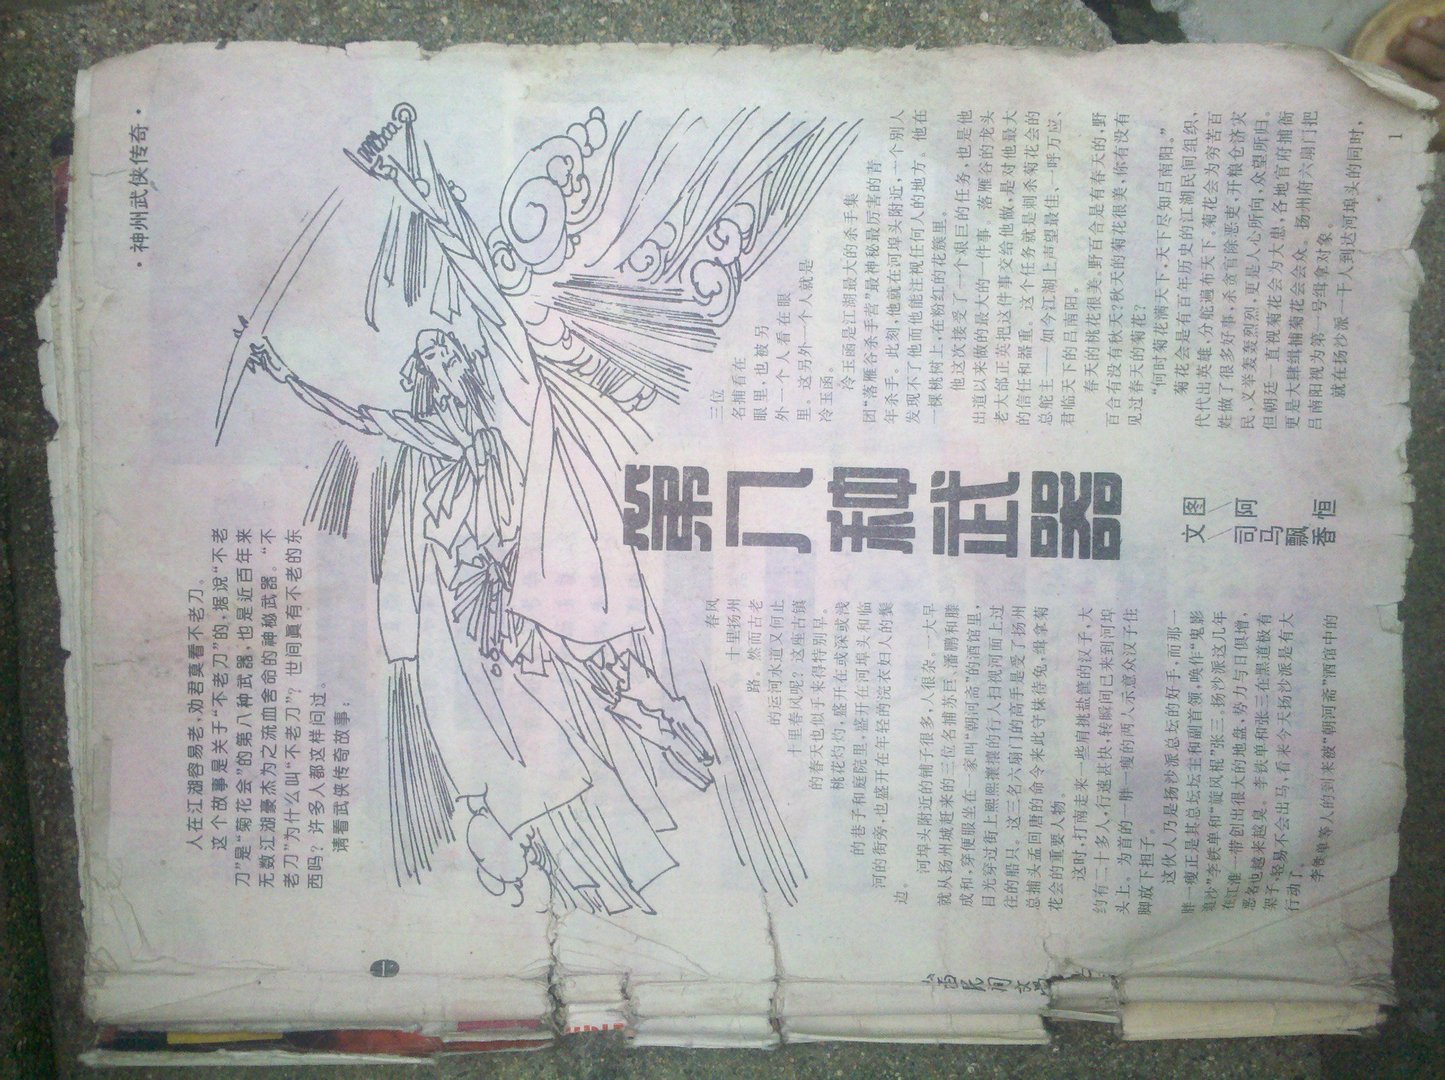 ·神州武侠传奇·
人在江湖容易老,劝君莫看不老刀。
这个故事是关于“不老刀”的,据说“不老
刀”是“菊花会”的第八种武器,也是近百年来
无数江湖豪杰为之流血舍命的神秘武器。“不
老刀”为什么叫“不老刀”?世间真有不老的东
西吗?许多人都这样问过。
请看武侠传奇故事:
第八种武器
文 司马飘香
图 阿恒
春风
十里扬州
路。然而古老
的运河水道又何止
十里春风呢?这座古镇
的春天也似乎来得特别早。
桃花灼灼,盛开在或深或浅
的巷子和庭院里,盛开在河埠头和临
河的街旁,也盛开在年轻的浣衣妇人的鬓
边。
河埠头附近的铺子很多,人很杂。一大早
就从扬州城赶来的三位名捕苏巨、潘鹏和滕
成和,穿便服坐在一家叫“朝河斋”的酒馆里,
目光穿过街上熙熙攘攘的行人扫视河面上过
往的船只。这三名六扇门的高手是受了扬州
总捕头孟回唐的命令来此守株待兔,缉拿菊
花会的重要人物。
这时,打南走来一些肩挑盐筐的汉子,大
约有二十多人,行速甚快,转瞬间已来到河埠
头上。为首的一胖一瘦的两人示意众汉子住
脚放下担子。
这伙人乃是扬沙派总坛的好手,而那一
胖一瘦正是其总坛坛主和副首领,唤作“鬼影
追沙”李铁单和“旋风棍”张三,扬沙派这几年
在江淮一带创出很大的地盘,势力与日俱增,
恶名也越来越臭。李铁单和张三在黑道极有
架子,轻易不会出马,看来今天扬沙派是有大
行动了。
李铁单等人的到来被“朝河斋”酒馆中的
三位
名捕看在
眼里,也被另
外一个人看在眼
里。这另外一个人就是
冷玉函。
冷玉函是江湖最大的杀手集
团“落雁谷杀手营”最神秘最厉害的青
年杀手。此刻,他就在河埠头附近,一个别人
发现不了他而他能注视任何人的地方。他在
一棵桃树上,在粉红的花簇里。
他这次接受了一个艰巨的任务,也是他
出道以来做的最大的一件事。落雁谷的龙头
老大邰正英把这件事交给他做,是对他最大
的信任和器重。这个任务就是刺杀菊花会的
总舵主——如今江湖上声望最佳、一呼万应、
君临天下的吕南阳。
春天的桃花很美,野百合是有春天的,野
百合有没有秋天?秋天的菊花很美,你有没有
见过春天的菊花?
“何时菊花满天下,天下尽知吕南阳。”
菊花会是有百年历史的江湖民间组织,
代代出英雄,分舵遍布天下。菊花会为穷苦百
姓做了很多好事,杀贪官除恶吏,开粮仓济灾
民,义举轰轰烈烈,更是人心所向,众望所归。
但朝廷一直视菊花会为大患,各地官府捕衙
更是大肆缉捕菊花会会众。扬州府六扇门把
吕南阳视为第一号缉拿对象。
就在扬沙派一干人到达河埠头的同时,
1